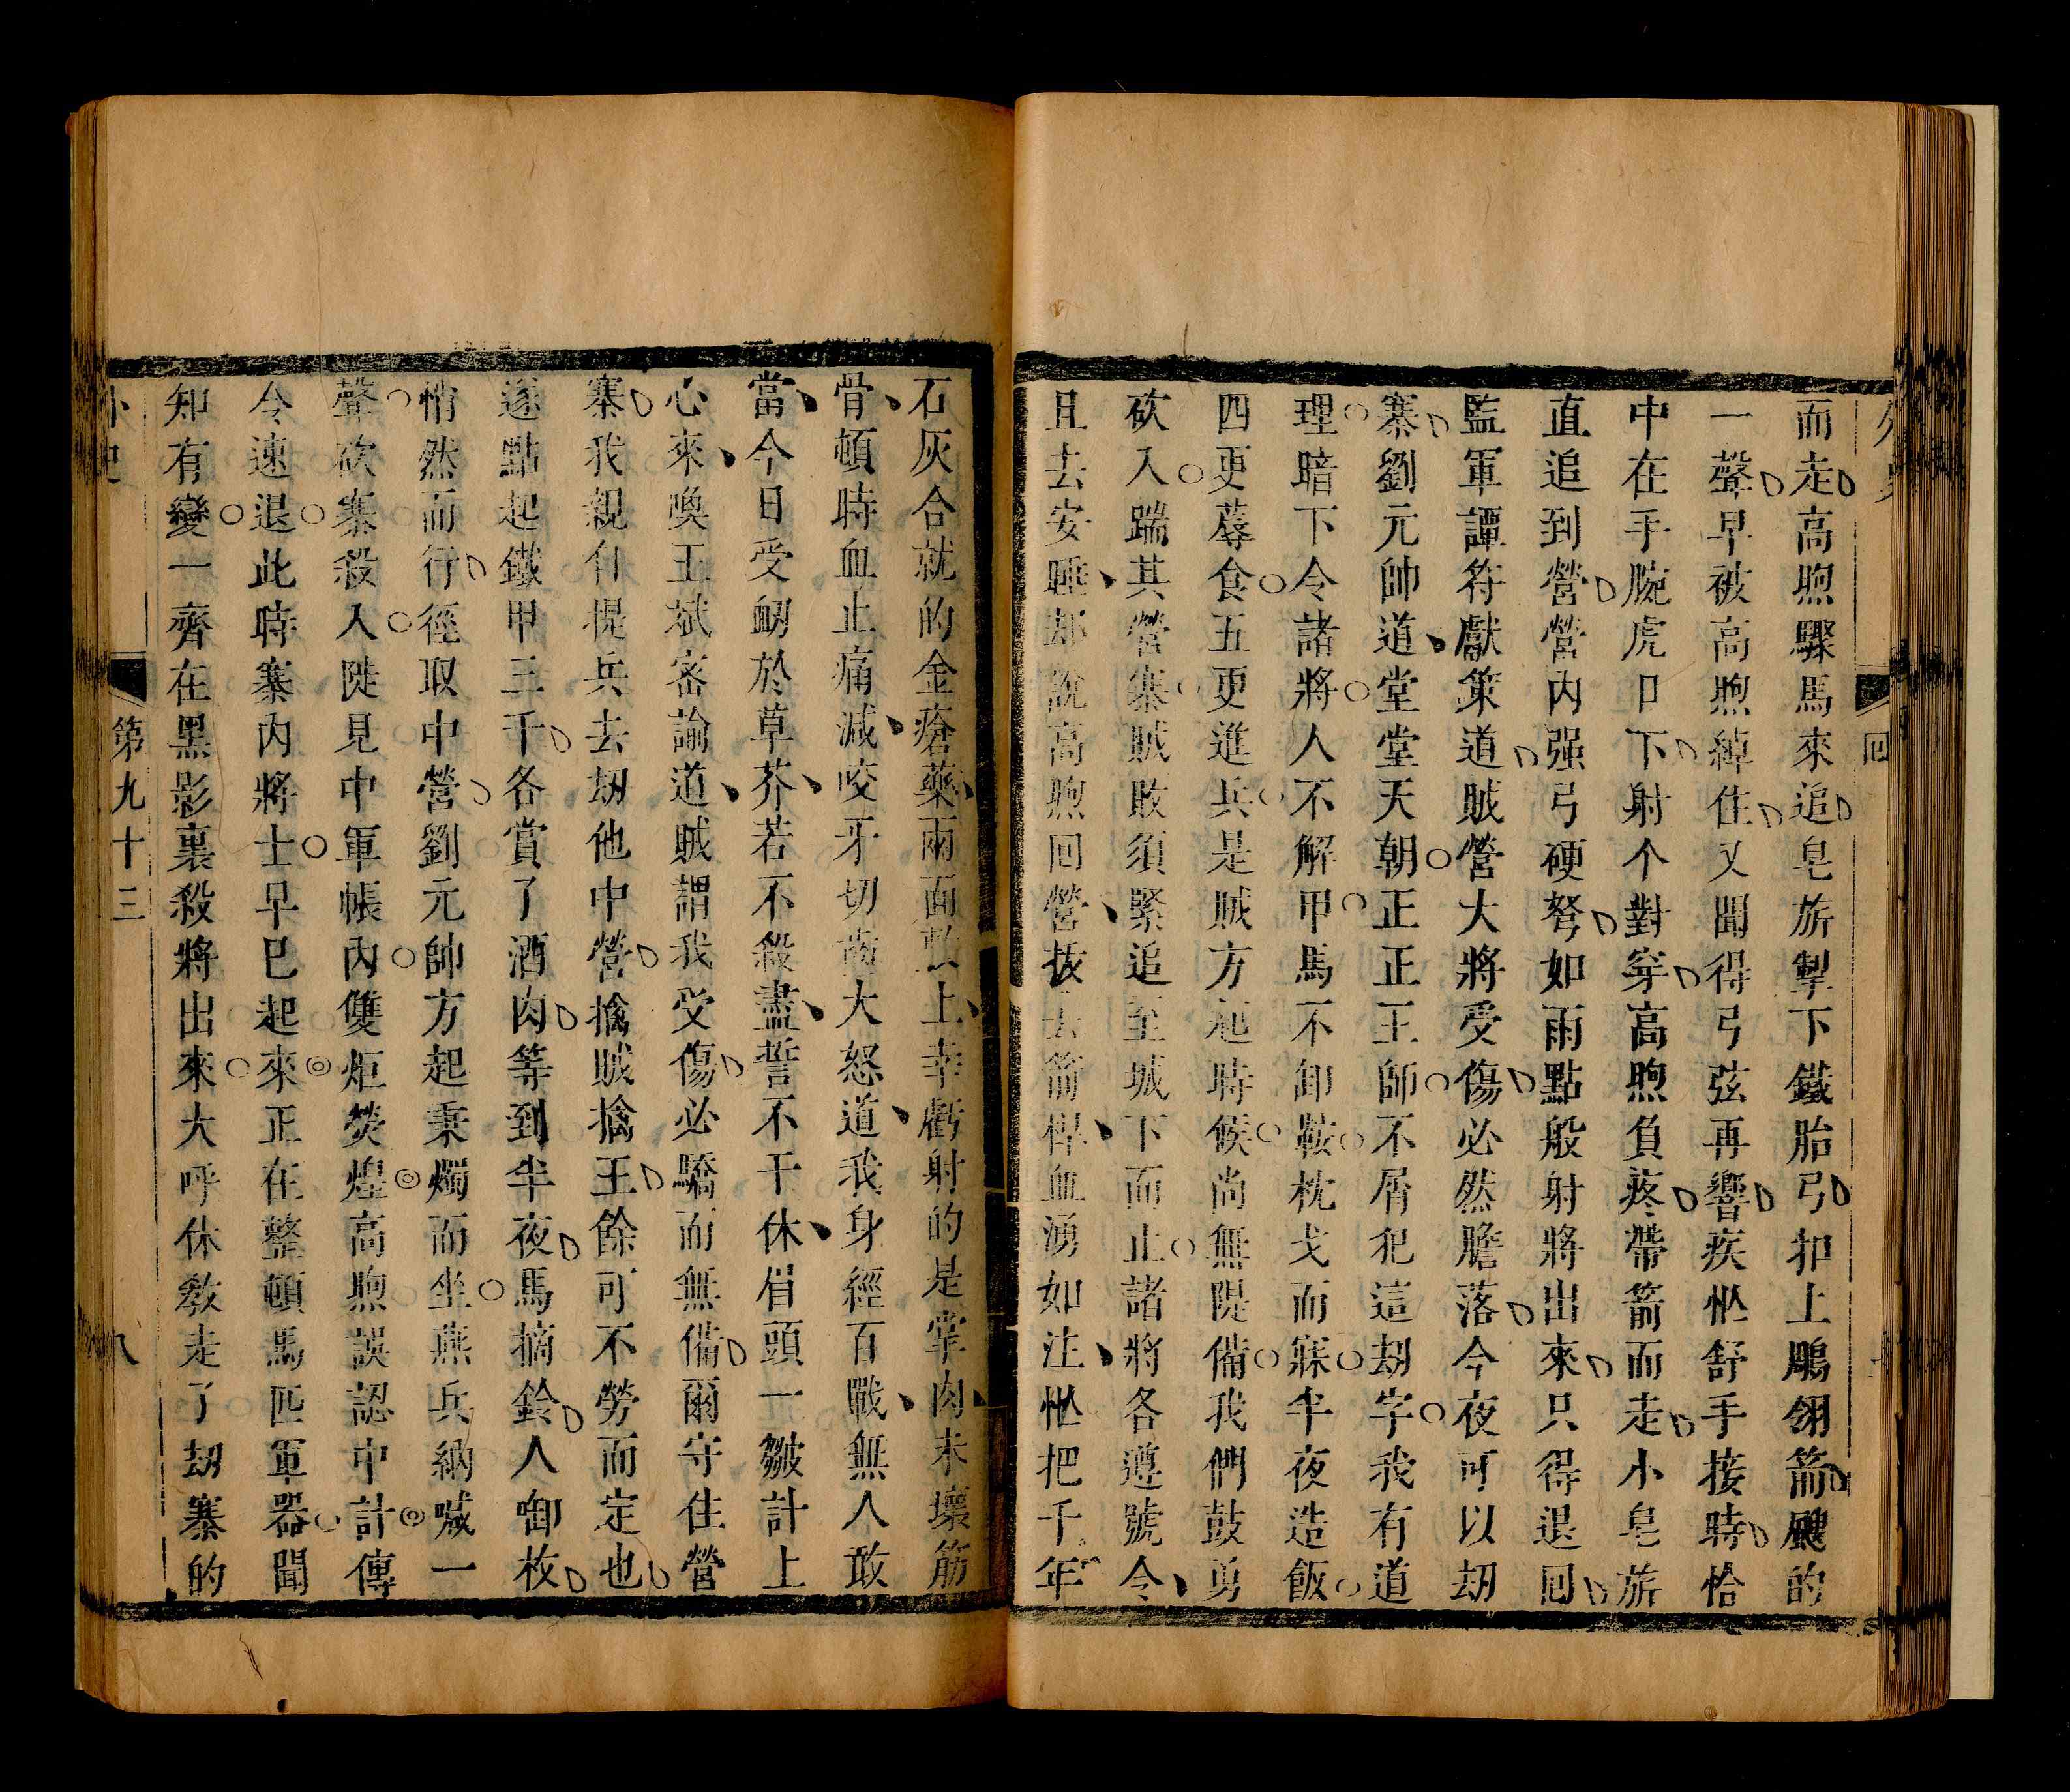 而走高煦驟馬來追皂旂掣下鐵胎弓扣上鵰翎箭颼的
一聲早被高煦綽住又聞得弓弦再響疾忙舒手接時恰
中在手腕虎口下射个對穿高煦負疼帶箭而走小皂旂
直追到營營內强弓硬弩如雨點般射將出來只得退回
監軍譚符獻策道賊營大將受傷必然膽落今夜可以刼
寨劉元帥道堂堂天朝正正王師不屑犯這刼字我有道
理暗下令諸將人不解甲馬不卸鞍枕戈而寐半夜造飯
四更蓐食五更進兵是賊方起時候尚無隄備我們鼓勇
砍入踹其營寨賊敗須緊追至城下而止諸將各遵號令
且去安睡却說高煦回營拔去箭桿血湧如注忙把千年
石灰合就的金瘡藥兩面敷上幸虧射的是掌肉未壞筋
骨頓時血止痛減咬牙切齒大怒道我身經百戰無人敢
當今日受衂於草芥若不殺盡誓不干休眉頭一皺計上
心來喚王斌密諭道賊謂我受傷必驕而無備爾守住營
寨我親自提兵去刼他中營擒賊擒王餘可不勞而定也
遂點起鐵甲三千各賞了酒肉等到半夜馬摘鈴人啣枚
悄然而行徑取中營劉元帥方起秉燭而坐燕兵納喊一
聲砍寨殺入陡見中軍帳內雙炬熒煌高煦誤認中計傳
令速退此時寨內將士早已起來正在整頓馬匹軍器聞
知有變一齊在黑影裏殺將出來大呼休教走了刼寨的
外史 第九十三 八